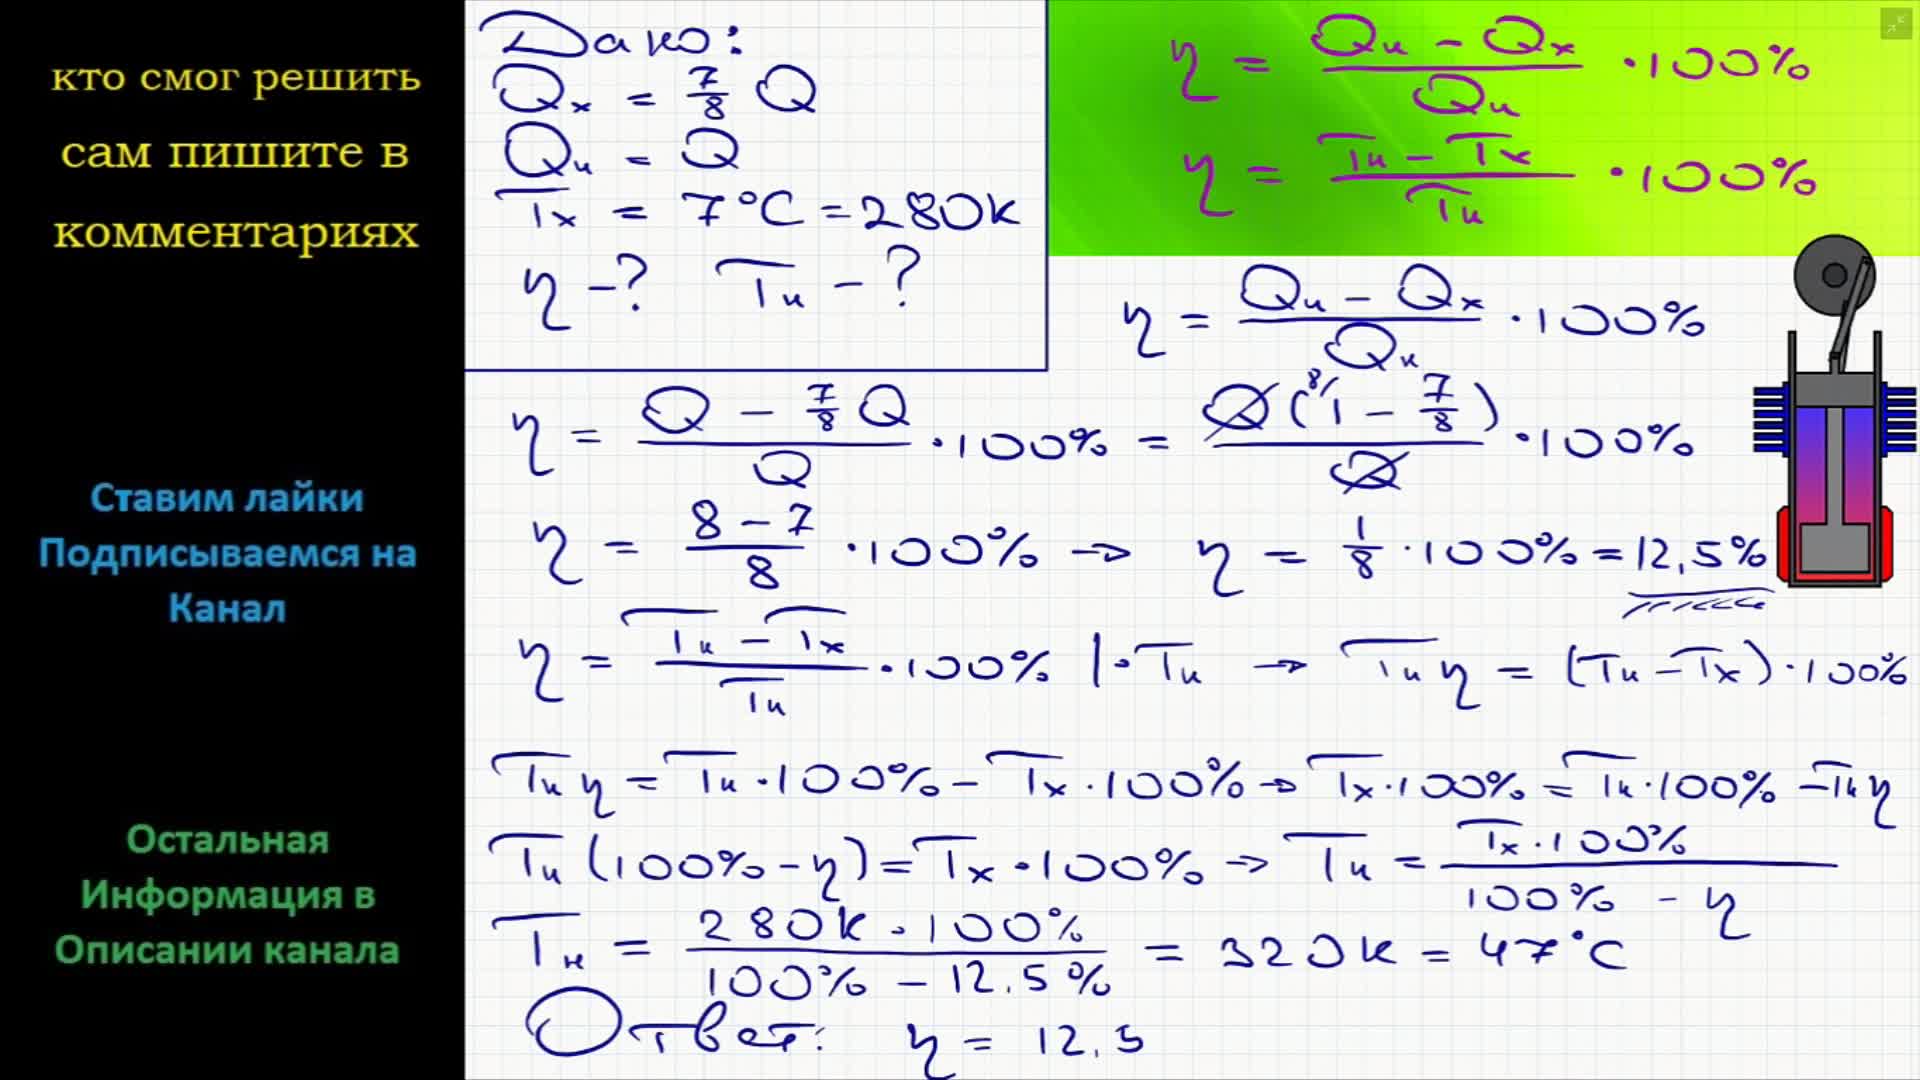 кто смог решить
сам пишите в
комментариях
Ставим лайки
Подписываемся на
Канал
Остальная
Информация в
Описании канала
Дано:
Qх = 7/8 Q
Qн = Q
Tх = 7°C = 280К
η - ? Tн - ?
η = (Qн - Qх)/Qн · 100%
η = (Tн - Tх)/Tн · 100%
η = (Qн - Qх)/Qн · 100%
η = (Q - 7/8 Q)/Q · 100% = Q(8/1 - 7/8)/Q · 100%
η = (8 - 7)/8 · 100% → η = 1/8 · 100% = 12,5%
η = (Tн - Tх)/Tн · 100% | · Tн → Tн η = (Tн - Tх) · 100%
Tн η = Tн · 100% - Tх · 100% → Tх · 100% = Tн · 100% - Tн η
Tн (100% - η) = Tх · 100% → Tн = Tх · 100% / (100% - η)
Tн = 280К · 100% / (100% - 12,5%) = 320К = 47°C
Ответ: η = 12,5